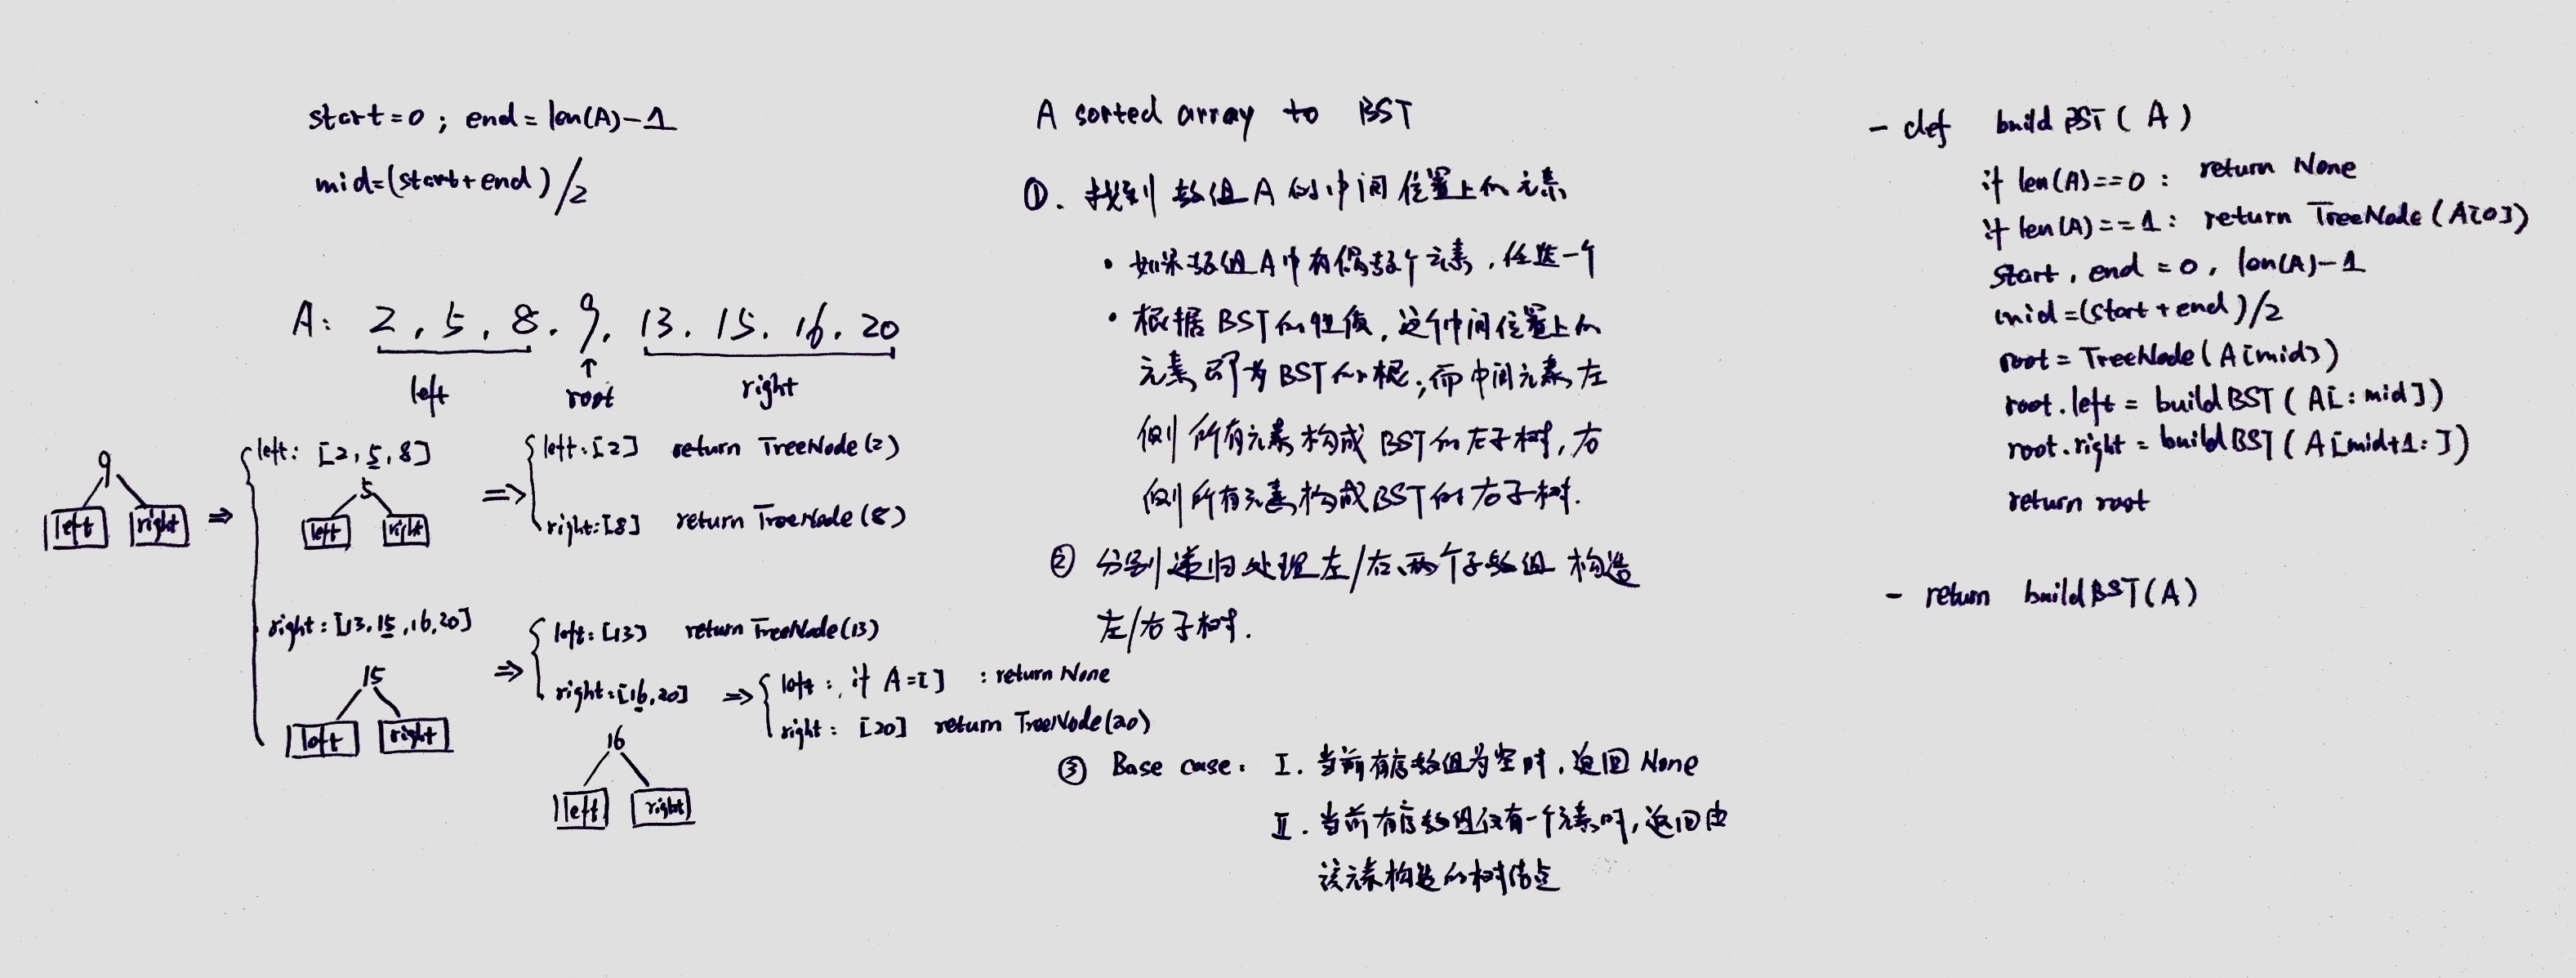 start=0 ; end=len(A)-1
mid=(start+end)/2
A: 2, 5, 8. 9, 13. 15. 16. 20
left root right
9
left right ⇒
left: [2,5,8]
5
left right
⇒ left:[2] return TreeNode(2)
right:[8] return TreeNode(8)
right:[13,15,16,20]
15
left right
⇒ left:[13] return TreeNode(13)
right:[16,20]
16
left right
⇒ left: if A=[] : return None
right: [20] return TreeNode(20)
A sorted array to BST
①. 找到数组A的中间位置上的元素
• 如果数组A中有偶数个元素,任选一个
• 根据BST的性质,这个中间位置上的
元素即为BST的根;而中间元素左
侧所有元素构成BST的左子树,右
侧所有元素构成BST的右子树.
② 分别递归处理左/右两个子数组 构造
左/右子树.
③ Base case: I. 当前有序数组为空时,返回None
II. 当前有序数组仅有一个元素时,返回由
该元素构造的树结点
- def buildBST(A)
if len(A)==0: return None
if len(A)==1: return TreeNode(A[0])
start, end = 0, len(A)-1
mid=(start+end)/2
root = TreeNode(A[mid])
root.left = buildBST(A[:mid])
root.right = buildBST(A[mid+1:])
return root
- return buildBST(A)